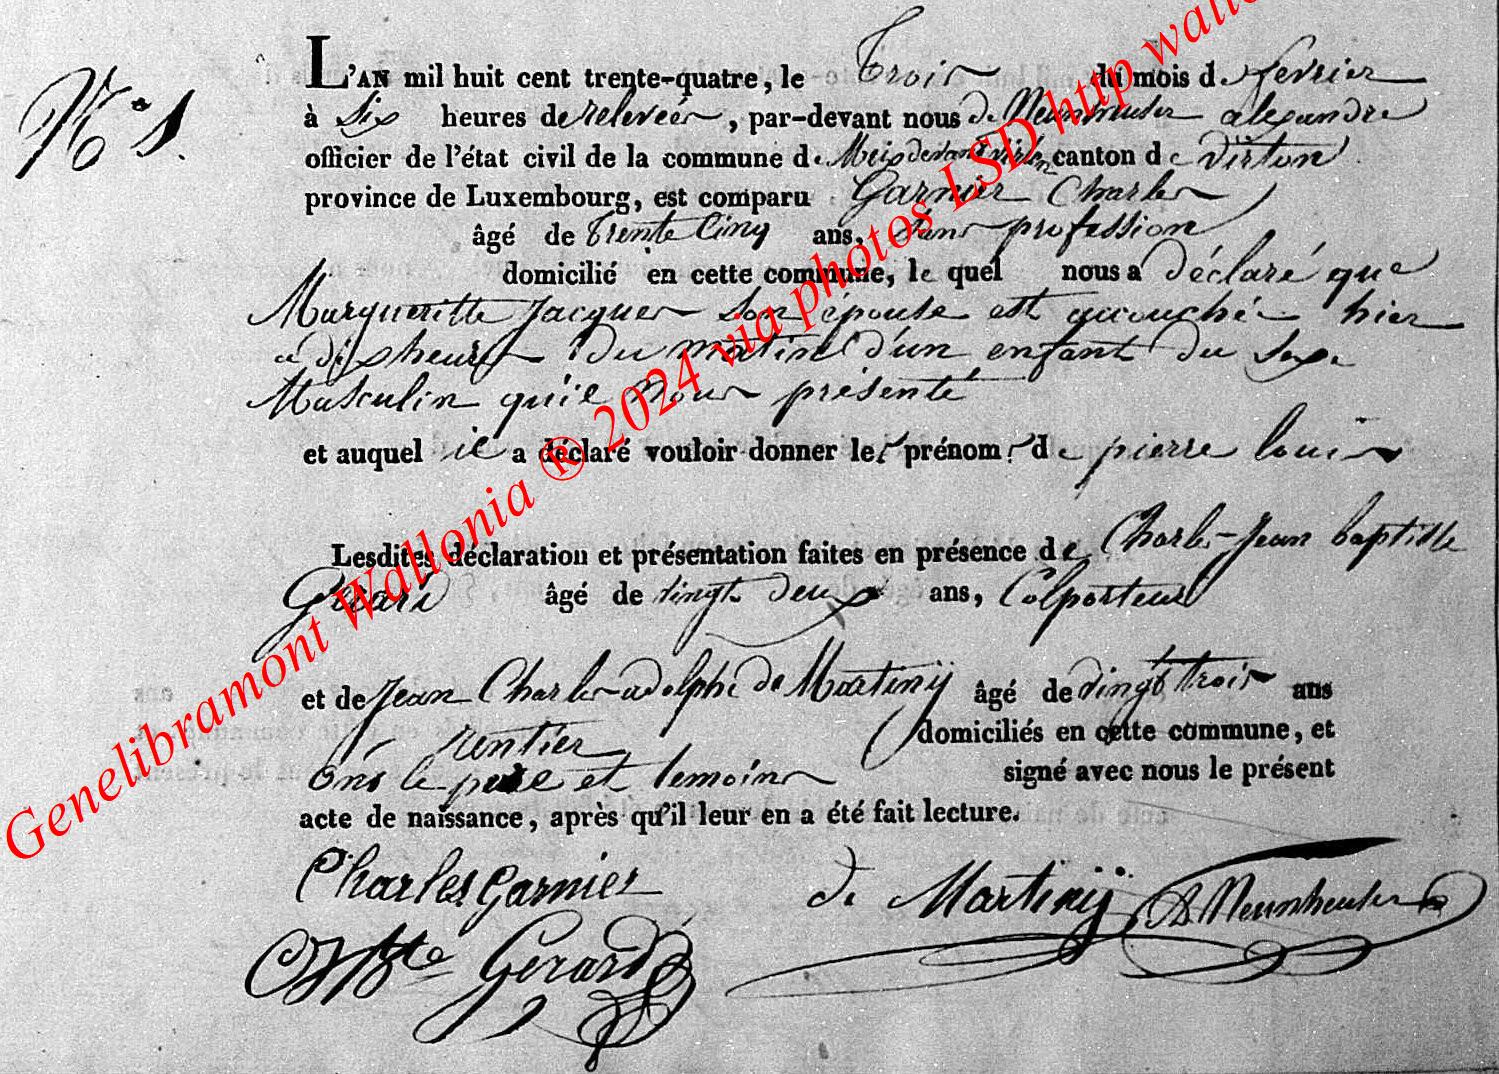 N° 5.
L'AN mil huit cent trente-quatre, le Trois du mois de fevrier
à Six heures de relevées, par-devant nous de Meunheuser alexandre
officier de l'état civil de la commune de Meix devant virton canton de Virton
province de Luxembourg, est comparu Garnier Charles
âgé de trente Cinq ans, Sans profession
domicilié en cette commune, le quel nous a déclaré que
Margueritte Jacques son épouse est accouchée hier
a dix heures Du matin d'un enfant Du Sexe
Masculin qu'il nous présente
et auquel il a déclaré vouloir donner les prénoms de pierre louis
Lesdites déclaration et présentation faites en présence de Charles-Jean baptiste
Gerard âgé de vingt deux ans, Colporteur
et de Jean Charles adolphe de Martiny âgé de vingt trois ans
rentier domiciliés en cette commune, et
Ons le père et temoins signé avec nous le présent
acte de naissance, après qu'il leur en a été fait lecture.
Charles Garnier de Martiny
Gerard
Genelibramont Wallonia ® 2024 via photos LSD http wallo